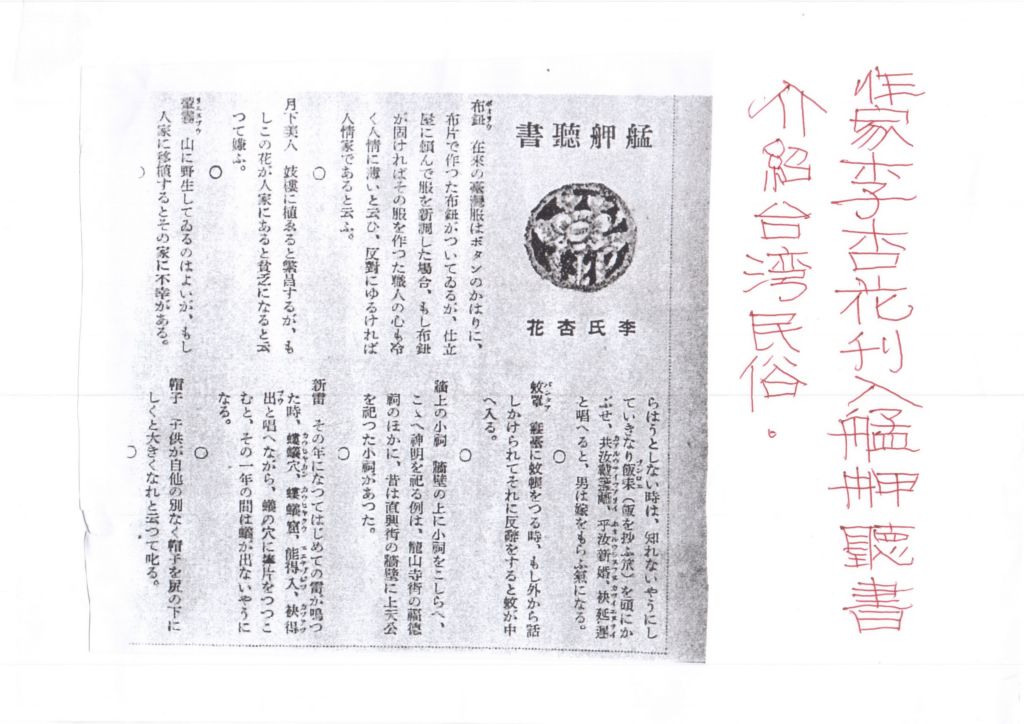 作家李杏花刊入艋舺聽書
介紹台湾民俗。
艋舺聽書
李氏杏花
布鈕 在來の臺灣服はボタンのかはりに、
布片で作つた布鈕がついてゐるが、仕立
屋に頼んで服を新調した場合、もし布鈕
が固ければその服を作つた職人の心も冷
く人情に薄いと云ひ、反對にゆるければ
人情家であると云ふ。
○
月下美人 妓樓に植ゑると繁昌するが、も
しこの花が人家にあると貧乏になると云
つて嫌ふ。
○
山に野生してゐるのはよいが、もし
人家に移植するとその家に不幸がある。
○
らはうとしない時は、知れないやうにし
ていきなり飯(飯を抄ふ)を頭にか
ぶせ、平汝新婚、袂延遲
と唱へると、男は嫁をもらふ氣になる。
○
蚊罩 寢臺に蚊帳をつる時、もし外から話
しかけられてそれに反辭をすると蚊が中
へ入る。
○
牆上の小祠 牆壁の上に小祠をこしらへ、
こゝへ神明を祀る例は、龍山寺街の福德
祠のほかに、昔は直興街の牆壁に上天公
を祀つた小祠があつた。
○
新雷 その年になつてはじめての雷が鳴つ
た時、螻蟻穴、螻蟻窟、能得入、袂得
出と唱へながら、蟻の穴に片をつつこ
むと、その一年の間は蟻が出ないやうに
なる。
○
帽子 子供が自他の別なく帽子を尻の下に
しくと大きくなれと云つて叱る。
○